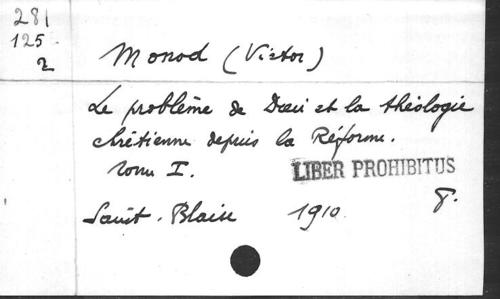 281
125
2
Monod (Victor)
Le problème de Dieu et la théologie
chrétienne depuis la Réforme.
Tome I.
LIBER PROHIBITUS
Saint-Blaise 1910
8.